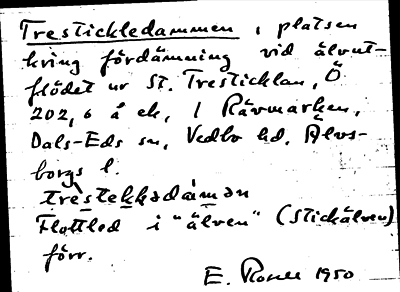 Trestickledammen, platsen
kring fördämning vid älvut-
flödet ur St. Tresticklan, Ö
202,6 å ek, i Rävmarken,
Dals-Eds sn, Vedbo hd, Älvs-
borgs l.
trèstekkədàmən
Flottled i "älven" (Stickälven)
förr.
E. 1950